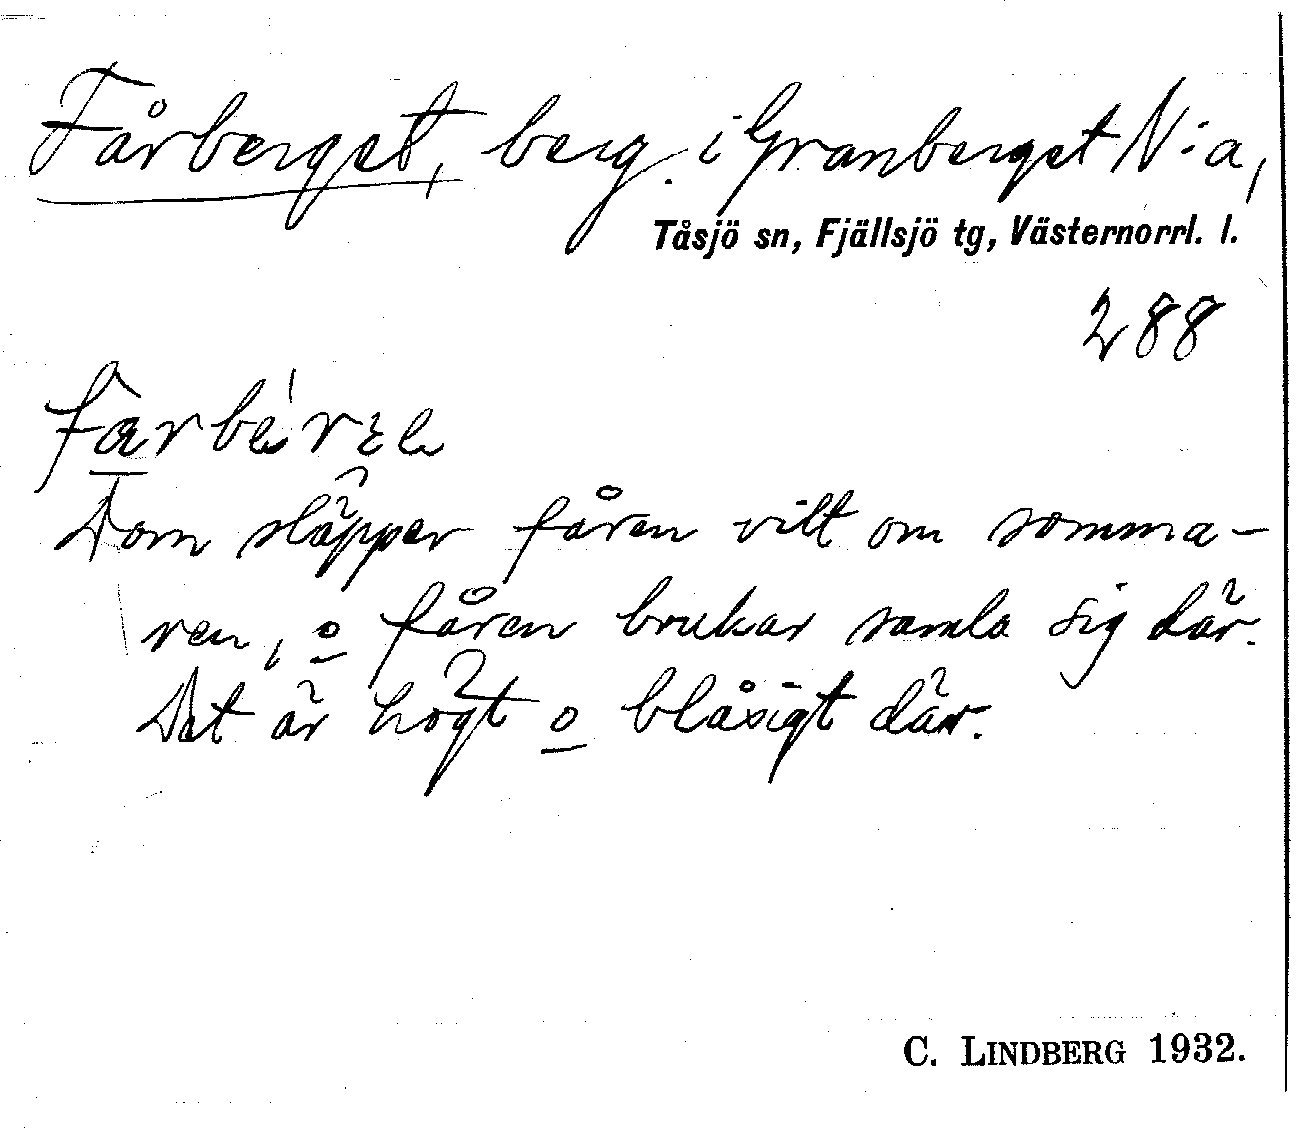 Fårberget, berg i Granberget N:a,
Tåsjö sn, Fjällsjö tg, Västernorrl. l.
288
Dom släpper fåren vilt om somma-
ren, o fåren brukar samla sig där.
Det är högt o blåsigt där.
C. LINDBERG 1932.